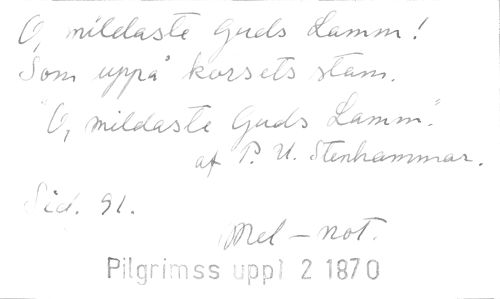 O, mildaste Guds Lamm!
Som uppå korsets stam.
"O, mildaste Guds Lamm".
af P. U. Stenhammar.
Sid. 91.
Mel-not.
Pilgrimss uppl 2 1870